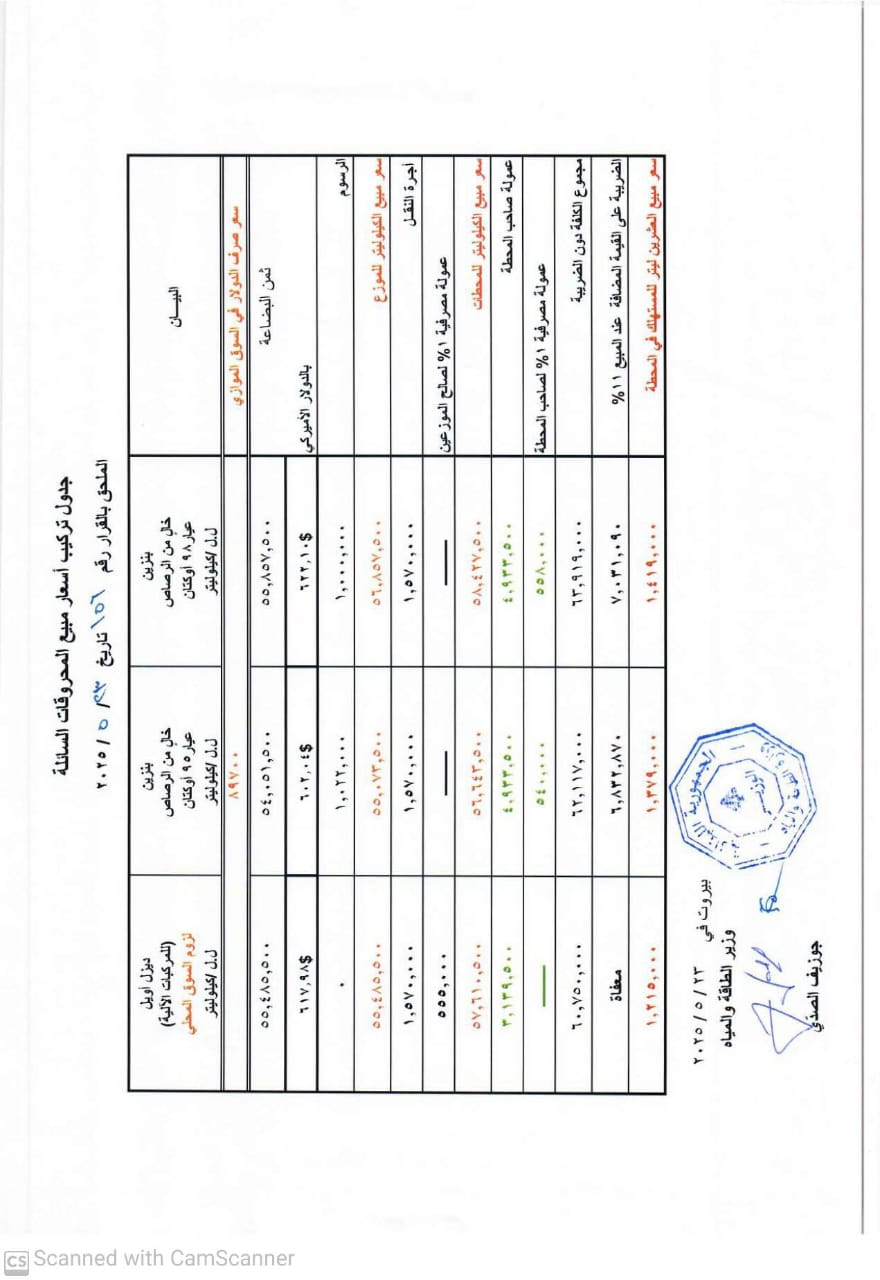 جدول تركيب أسعار مبيع المحروقات السائلة
الملحق بالقرار رقم ١٥٦ تاريخ ٢٣ / ٥ / ٢٠٢٥
البيـــان
بنزين
خالٍ من الرصاص
عيار ٩٨ أوكتان
ل.ل/كيلوليتر
بنزين
خالٍ من الرصاص
عيار ٩٥ أوكتان
ل.ل/كيلوليتر
ديزل أويل
(للمركبات الآلية)
لزوم السوق المحلي
ل.ل/كيلوليتر
سعر صرف الدولار في السوق الموازي ٨٩٧٠٠
ثمن البضاعة ٥٥,٨٥٧,٥٠٠ ٥٤,٠٥١,٥٠٠ ٥٥,٤٨٥,٥٠٠
بالدولار الأميركي ٦٢٢,١٠$ ٦٠٢,٠٤$ ٦١٧,٩٨$
الرسوم ١,٠٠٠,٠٠٠ ١,٠٢٢,٠٠٠ ٠
سعر مبيع الكيلوليتر للموزع ٥٦,٨٥٧,٥٠٠ ٥٥,٠٧٣,٥٠٠ ٥٥,٤٨٥,٥٠٠
أجرة النقل ١,٥٧٠,٠٠٠ ١,٥٧٠,٠٠٠ ١,٥٧٠,٠٠٠
عمولة مصرفية ١% لصالح الموزعين — — ٥٥٥,٠٠٠
سعر مبيع الكيلوليتر للمحطات ٥٨,٤٢٧,٥٠٠ ٥٦,٦٤٣,٥٠٠ ٥٧,٦١٠,٥٠٠
عمولة صاحب المحطة ٤,٩٣٣,٥٠٠ ٤,٩٣٣,٥٠٠ ٣,١٣٩,٥٠٠
عمولة مصرفية ١% لصاحب المحطة ٥٥٨,٠٠٠ ٥٤٠,٠٠٠ —
مجموع الكلفة دون الضريبة ٦٣,٩١٩,٠٠٠ ٦٢,١١٧,٠٠٠ ٦٠,٧٥٠,٠٠٠
الضريبة على القيمة المضافة عند المبيع ١١% ٧,٠٣١,٠٩٠ ٦,٨٣٢,٨٧٠ معفاة
سعر مبيع العشرين ليتر للمستهلك في المحطة ١,٤١٩,٠٠٠ ١,٣٧٩,٠٠٠ ١,٢١٥,٠٠٠
بيروت في ٢٣ / ٥ / ٢٠٢٥
وزير الطاقة والمياه
جوزيف الصدّي
الجمهورية اللبنانية
الوزير
وزارة الطاقة والمياه
CS Scanned with CamScanner